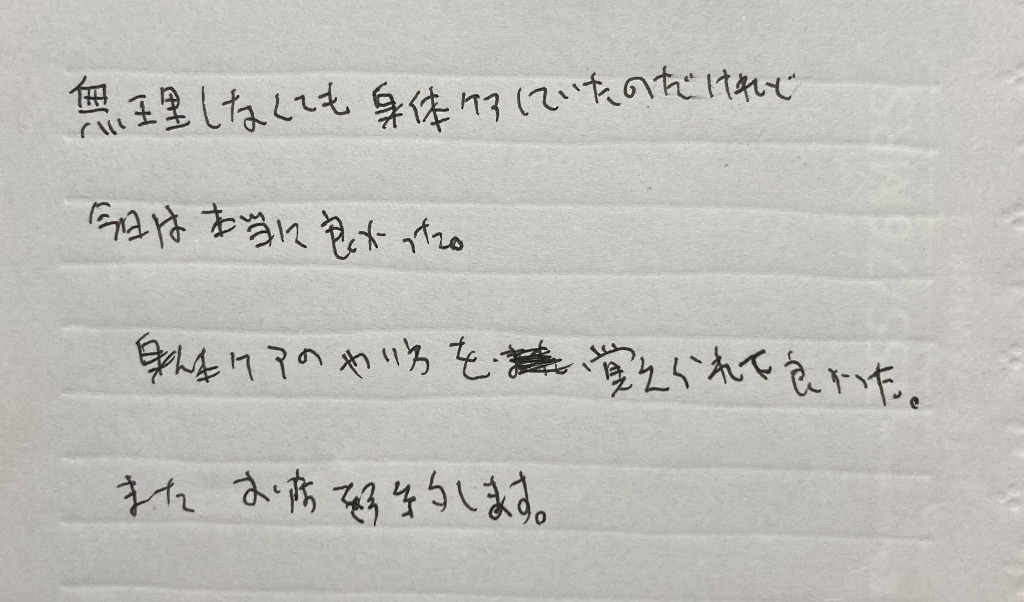 無理しなくても身体ケアしていたのだけれど
今日は本当に良かった。
身体ケアのやり方を覚えられて良かった。
またお店予約します。